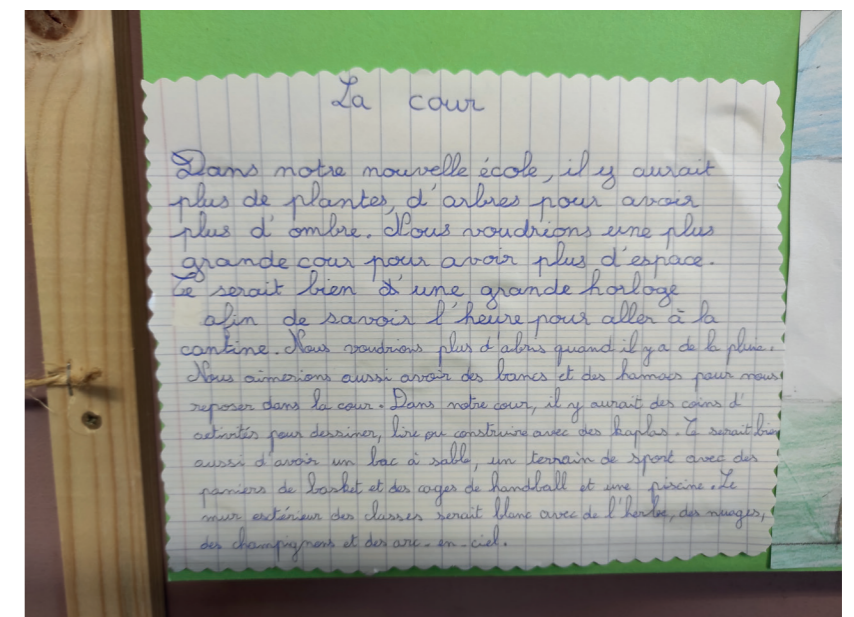 La cour
Dans notre nouvelle école, il y aurait
plus de plantes, d'arbres pour avoir
plus d'ombre. Nous voudrions une plus
grande cour pour avoir plus d'espace.
Ce serait bien d'une grande horloge
afin de savoir l'heure pour aller à la
cantine. Nous voudrions plus d'abris quand il y a de la pluie.
Nous aimerions aussi avoir des bancs et des hamacs pour nous
reposer dans la cour. Dans notre cour, il y aurait des coins d'
activités pour dessiner, lire ou construire avec des kaplas. Ce serait bien
aussi d'avoir un bac à sable, un terrain de sport avec des
paniers de basket et des cages de handball et une piscine. Le
mur extérieur des classes serait blanc avec de l'herbe, des nuages,
des champignons et des arc-en-ciel.